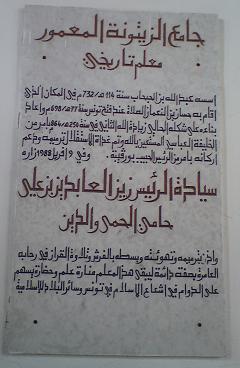 جامع الزيتونة المعمور
معلم تاريخي
اسسه عبد الله بن الحبحاب سنة 114 هـ/732م في المكان الذي
اقام به حسان بن النعمان الصلاة عند فتح تونس سنة 77هـ/698م واعاد
بناءه على شكله الحالي زيادة الله الثاني في سنة 250هـ/864م بامر من
الخليفة العباسي المستعين بالله وتم غداة الاستقلال ترميمه ودعم
اركانه بامر من الرئيس الحبيب بورقيبة . وفي 9 افريل 1988 زاره
سيادة الرئيس زين العابدين بن علي
حامي الحمى والدين
واذن بترميمه وتهوئته وبسطه بالفرش وتلاوة القرآن في رحابه
العامرة بصفة دائمة ليبقى هذا المعلم منارة علم وحضارة يسهم
على الدوام في اشعاع الاسلام في تونس وسائر البلاد الاسلامية